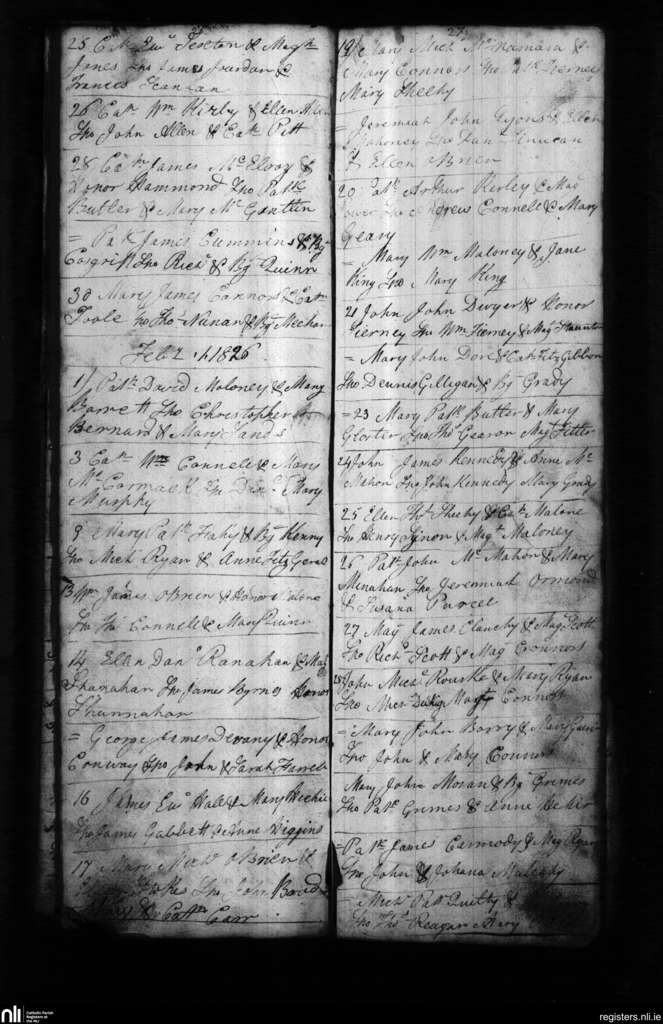 25 Cath Edwd Sexton & Magt
James Spo James Jourdan &
Frances
26 Cath Wm Kirby & Ellen Allen
Spo John Allen & Cath Pitt
28 Cath James McElroy &
Honor Hammond Spo Patk
Butler & Mary
= Patk James Cummins & By
Cosgriff Spo Richd & By Quinn
30 Mary James Connors & Cath
Toole Spo Thos Nunan & By Meehan
Feb 1826
1 Patk David Moloney & Mary
Barrett Spo Chrestopher
Bernard & Mary Sands
3 Cath Wm Connell & Mary
McCormack Spo Danl & Mary
Murphy
9 Mary Patk Fahy & By Kenny
Spo Mich Ryan & Anne FitzGerald
13 Wm James OBrien & Honor Malone
Spo Thos Connell & Mary Quinn
14 Ellen Danl Ranahan & Mag
Shanahan Spo James Byrnes Honor
Shunnahan
= George James Devany & Honor
Conway Spo John & Sarah Farrell
16 James Edwd Hall & Mary Hechir
Spo James Gabbett & Anne Wiggins
17 Mary Michl OBrien &
Spo John
& Cathn Carr
21
19 Mich McNamara &
Mary Connors Spo Patk Tierney
Mary Sheehy
= Jeremiah John Lyons & Ellen
Mahoney Spo Danl Finucan
& Ellen Brien
20 Patk Arthur Kerley & Mag
Power Spo Andrew Connell & Mary
Geary
= Mary Wm Maloney & Jane
King Spo Mary King
21 John John Dwyer & Honor
Tierney Spo Wm Tierney & Mag Staunton
= Mary John Dore & Cath FitzGibbon
Spo Dennis Gilligan & By Grady
= 23 Mary Patk Butler & Mary
Gloster Spo Thos Gearon Mag Fetter
24 John James Kennedy & Anne Mc
Mahon Spo John Kennedy Mary Grady
25 Ellen Thos Sheehy & Cath Malone
Spo Henry Lynon & Magt Maloney
26 Patk John McMahon & Mary
Menahan Spo Jeremiah Ormond
& Susana Purcel
27 Mary James Clanchy & Mag Scott
Spo Richd Scott & Mag Connors
28 John Michl Rourke & Mary Ryan
Spo Michl Mary Connors
= Mary John Barry & Mary
Spo John & Mary Connors
Mary John Moran & By Grimes
Spo Patk Grimes & Anne
= Patk James Carmody & Mag Ryan
Spo John & Johana Mulcahy
= Michl Patk Quilty &
Spo Thos Reagan Mary
nli
Catholic Parish
Registers at
the NLI
registers.nli.ie